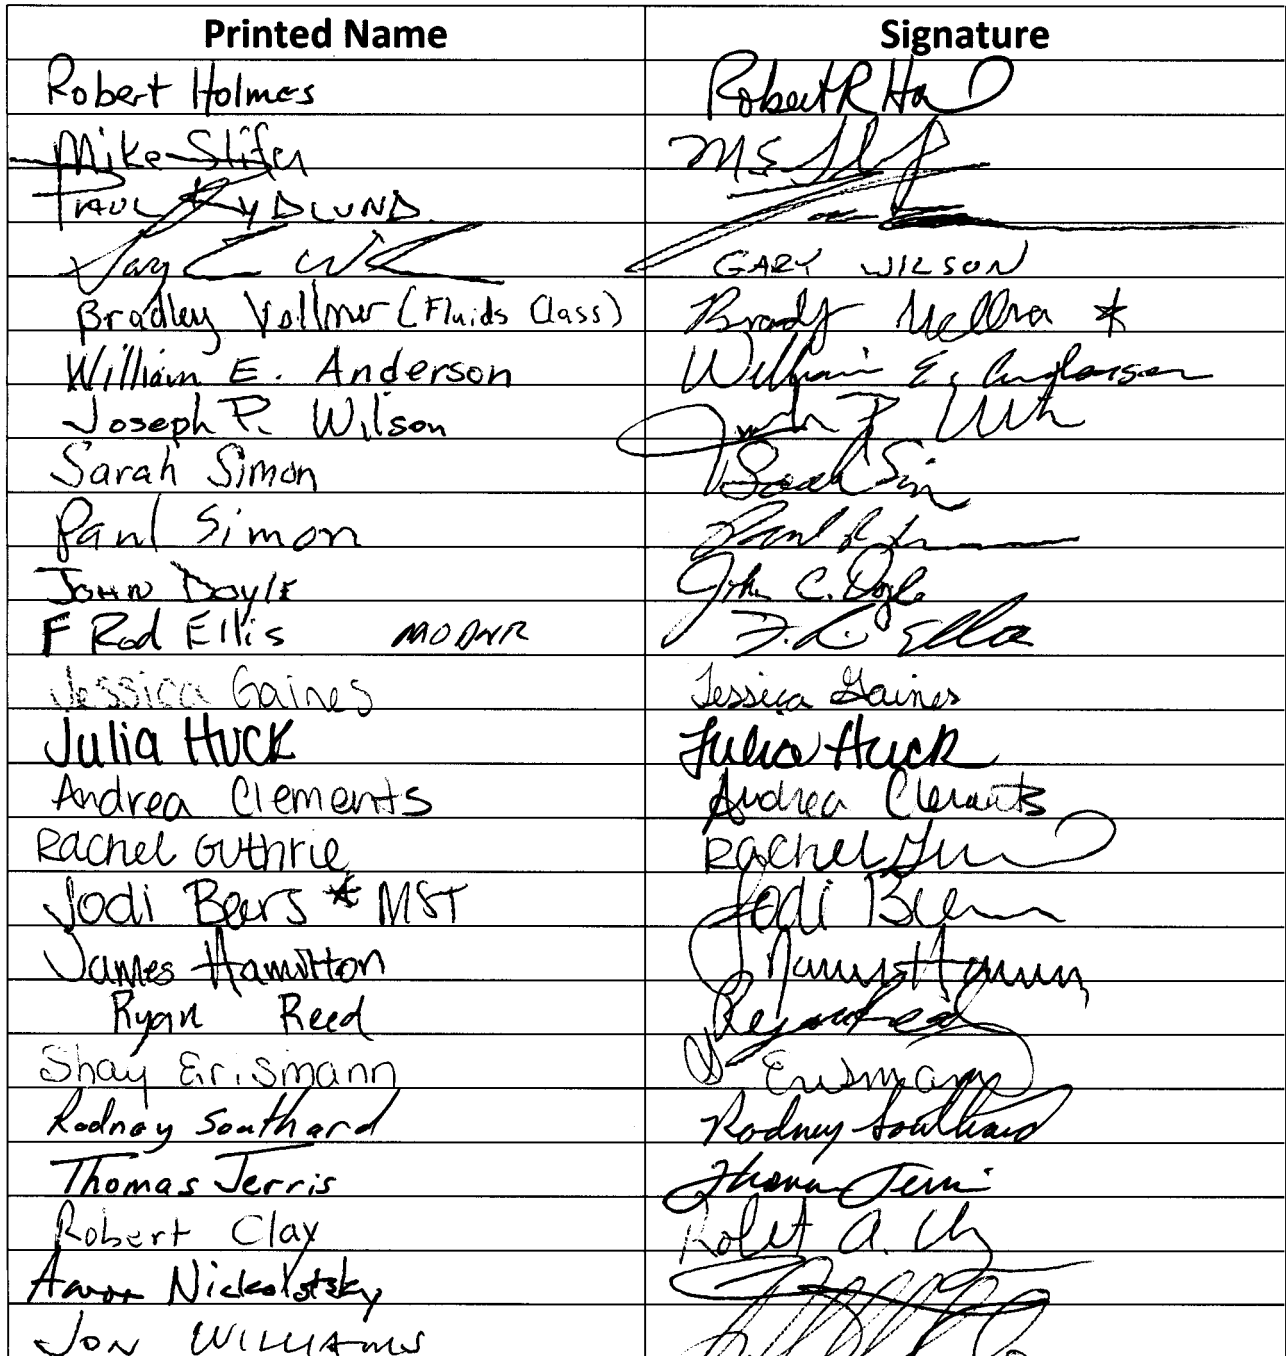 Printed Name Signature
Robert Holmes Robert R Ho
Mike Slifer M S
PAUL RYDLUND
Gary GARY WILSON
Bradley Vollmer (Fluids Class) Brady *
William E. Anderson William E. Anderson
Joseph P. Wilson P.
Sarah Simon Sarah Sim
Paul Simon Paul
JOHN DOYLE John C. Doyle
F Rod Ellis MODNR F. R. Ellis
Jessica Gaines Jessica Gaines
Julia Huck Julia Huck
Andrea Clements Andrea Clements
Rachel Guthrie Rachel
Jodi Beers * MST Jodi
James Hamilton
Ryan Reed Ryan Reed
Shay Erismann Erismann
Rodney Southard Rodney Southard
Thomas Jerris Thomas Jerris
Robert Clay Robert A.
Aaron Nickolotsky
JON WILLIAMS